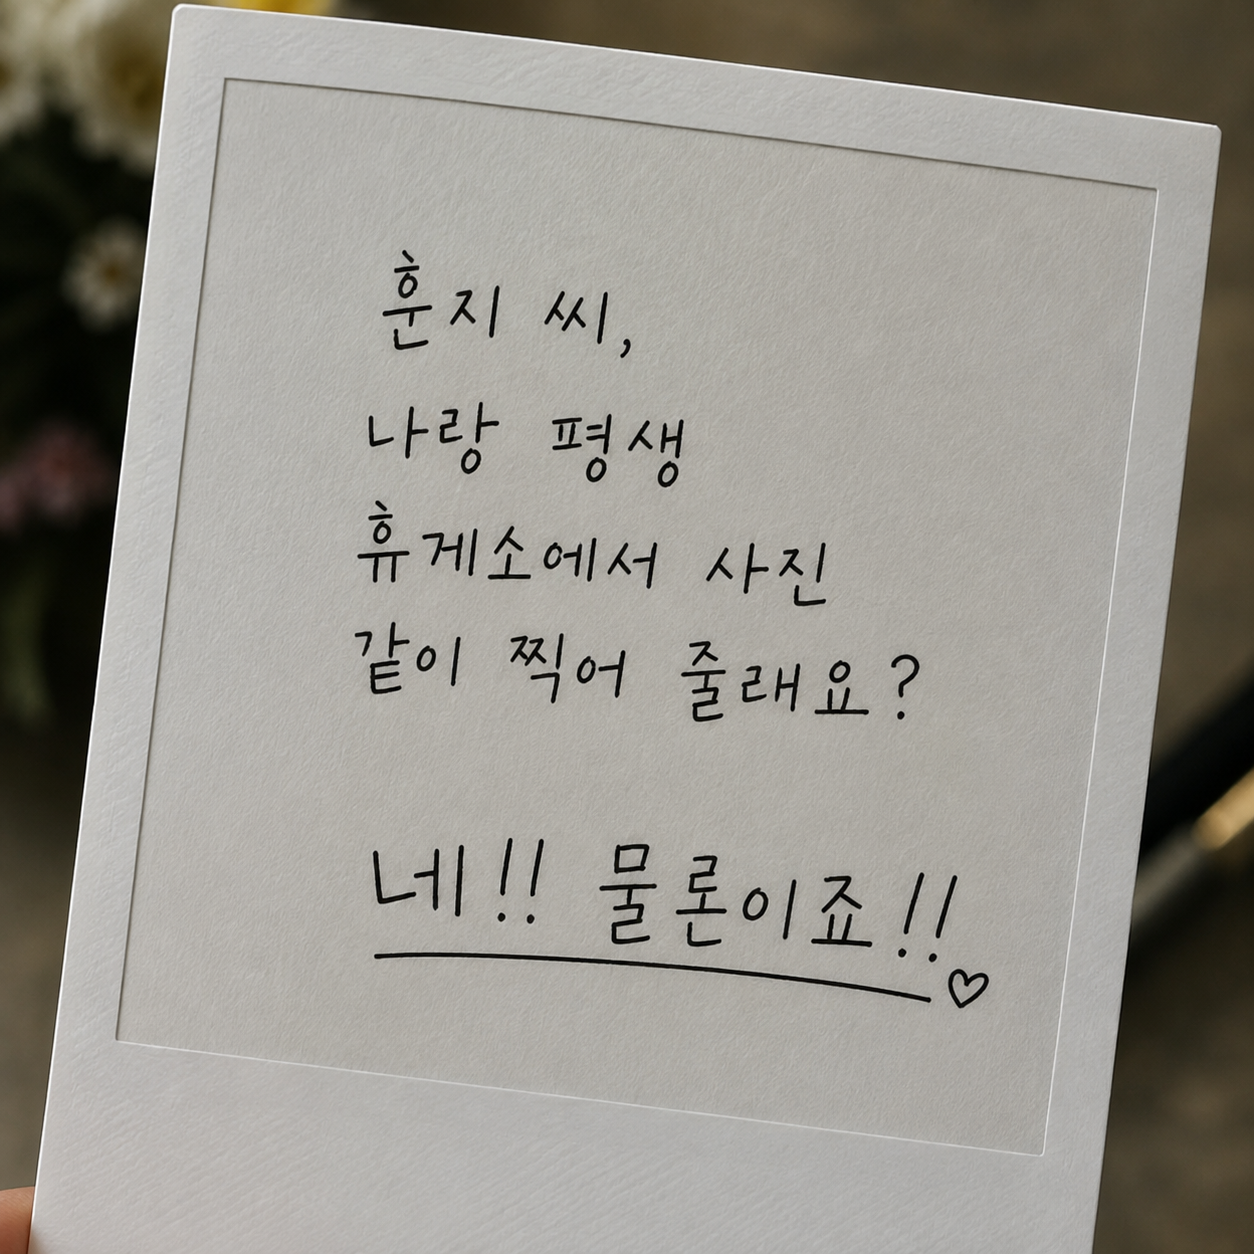 훈지 씨,
나랑 평생
휴게소에서 사진
같이 찍어 줄래요?
네!! 물론이죠!!♡